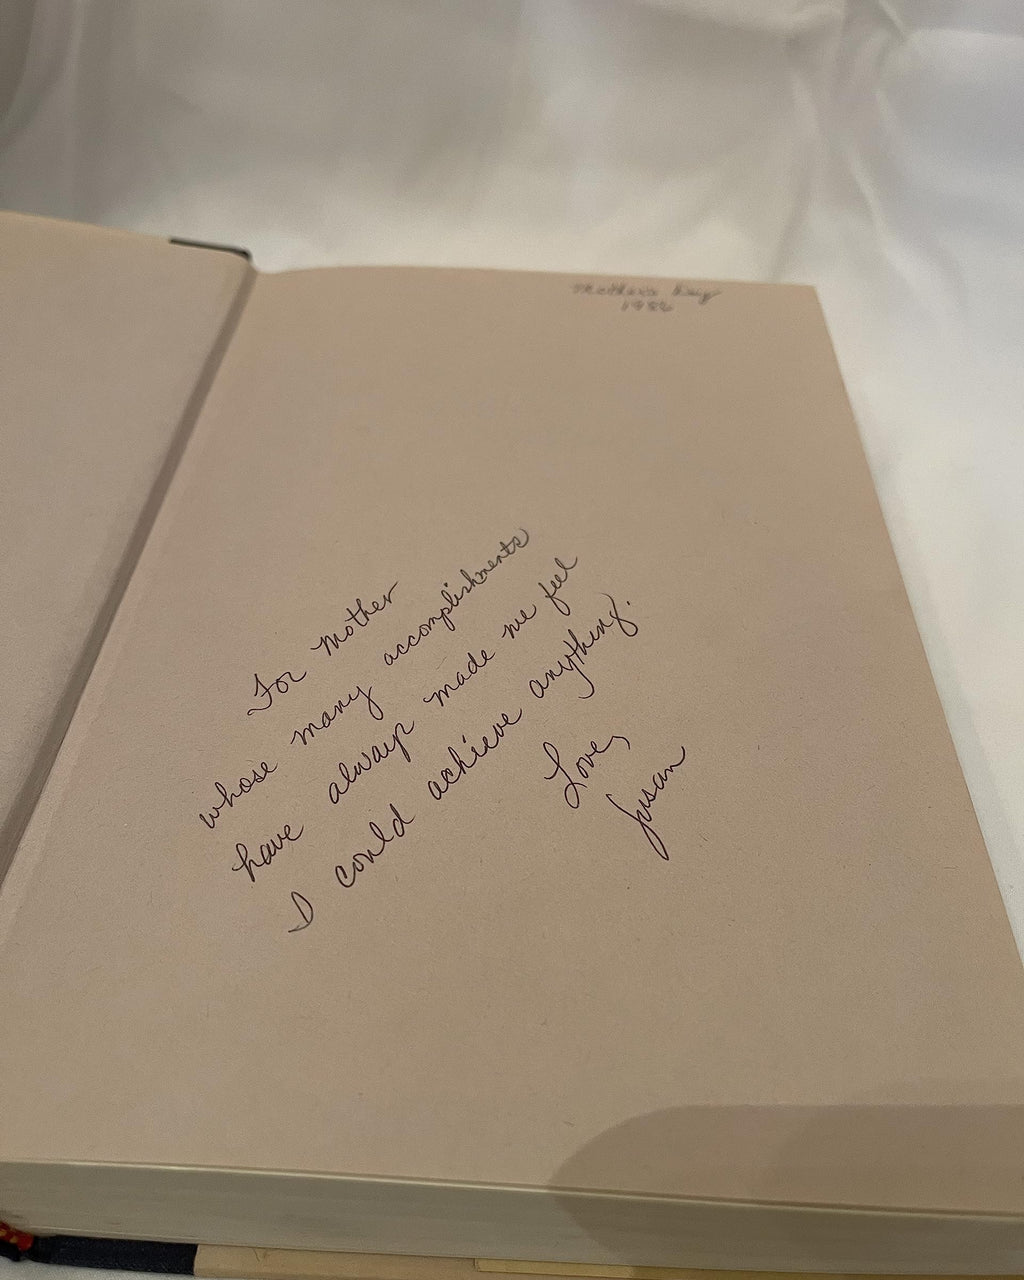 Mother's Day
For Mother
whose many accomplishments
have always made me feel
I could achieve anything.
Love,
Susan